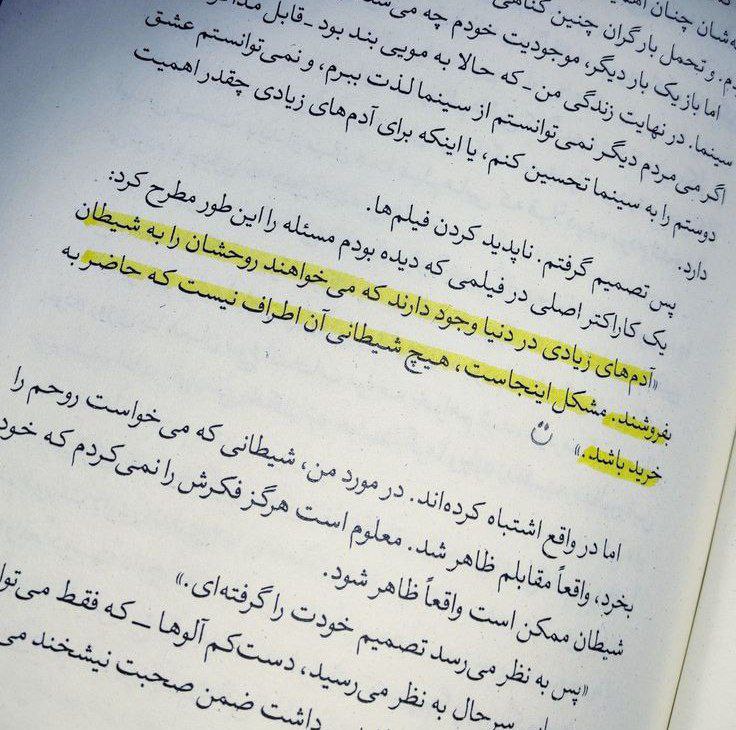 شان چنان
و تحمل بار گران چنین گناهی
اما باز یک بار دیگر، موجودیت خودم چه می‌شد
سینما. در نهایت زندگی من ـ که حالا به مویی بند بود ـ قابل
اگر می‌مردم دیگر نمی‌توانستم از سینما لذت ببرم، و نمی‌توانستم عشق
دوستم را به سینما تحسین کنم، یا اینکه برای آدم‌های زیادی چقدر اهمیت
دارد.
پس تصمیم گرفتم. ناپدید کردن فیلم‌ها.
یک کاراکتر اصلی در فیلمی که دیده بودم مسئله را این طور مطرح کرد:
«آدم‌های زیادی در دنیا وجود دارند که می‌خواهند روحشان را به شیطان
بفروشند. مشکل اینجاست، هیچ شیطانی آن اطراف نیست که حاضر به
خرید باشد.»
اما در واقع اشتباه کرده‌اند. در مورد من، شیطانی که می‌خواست روحم را
بخرد، واقعاً مقابلم ظاهر شد. معلوم است هرگز فکرش را نمی‌کردم که خود
شیطان ممکن است واقعاً ظاهر شود.
«پس به نظر می‌رسد تصمیم خودت را گرفته‌ای.»
سرحال به نظر می‌رسید، دست‌کم آلوها ـ که فقط
داشت ضمن صحبت نیشخند